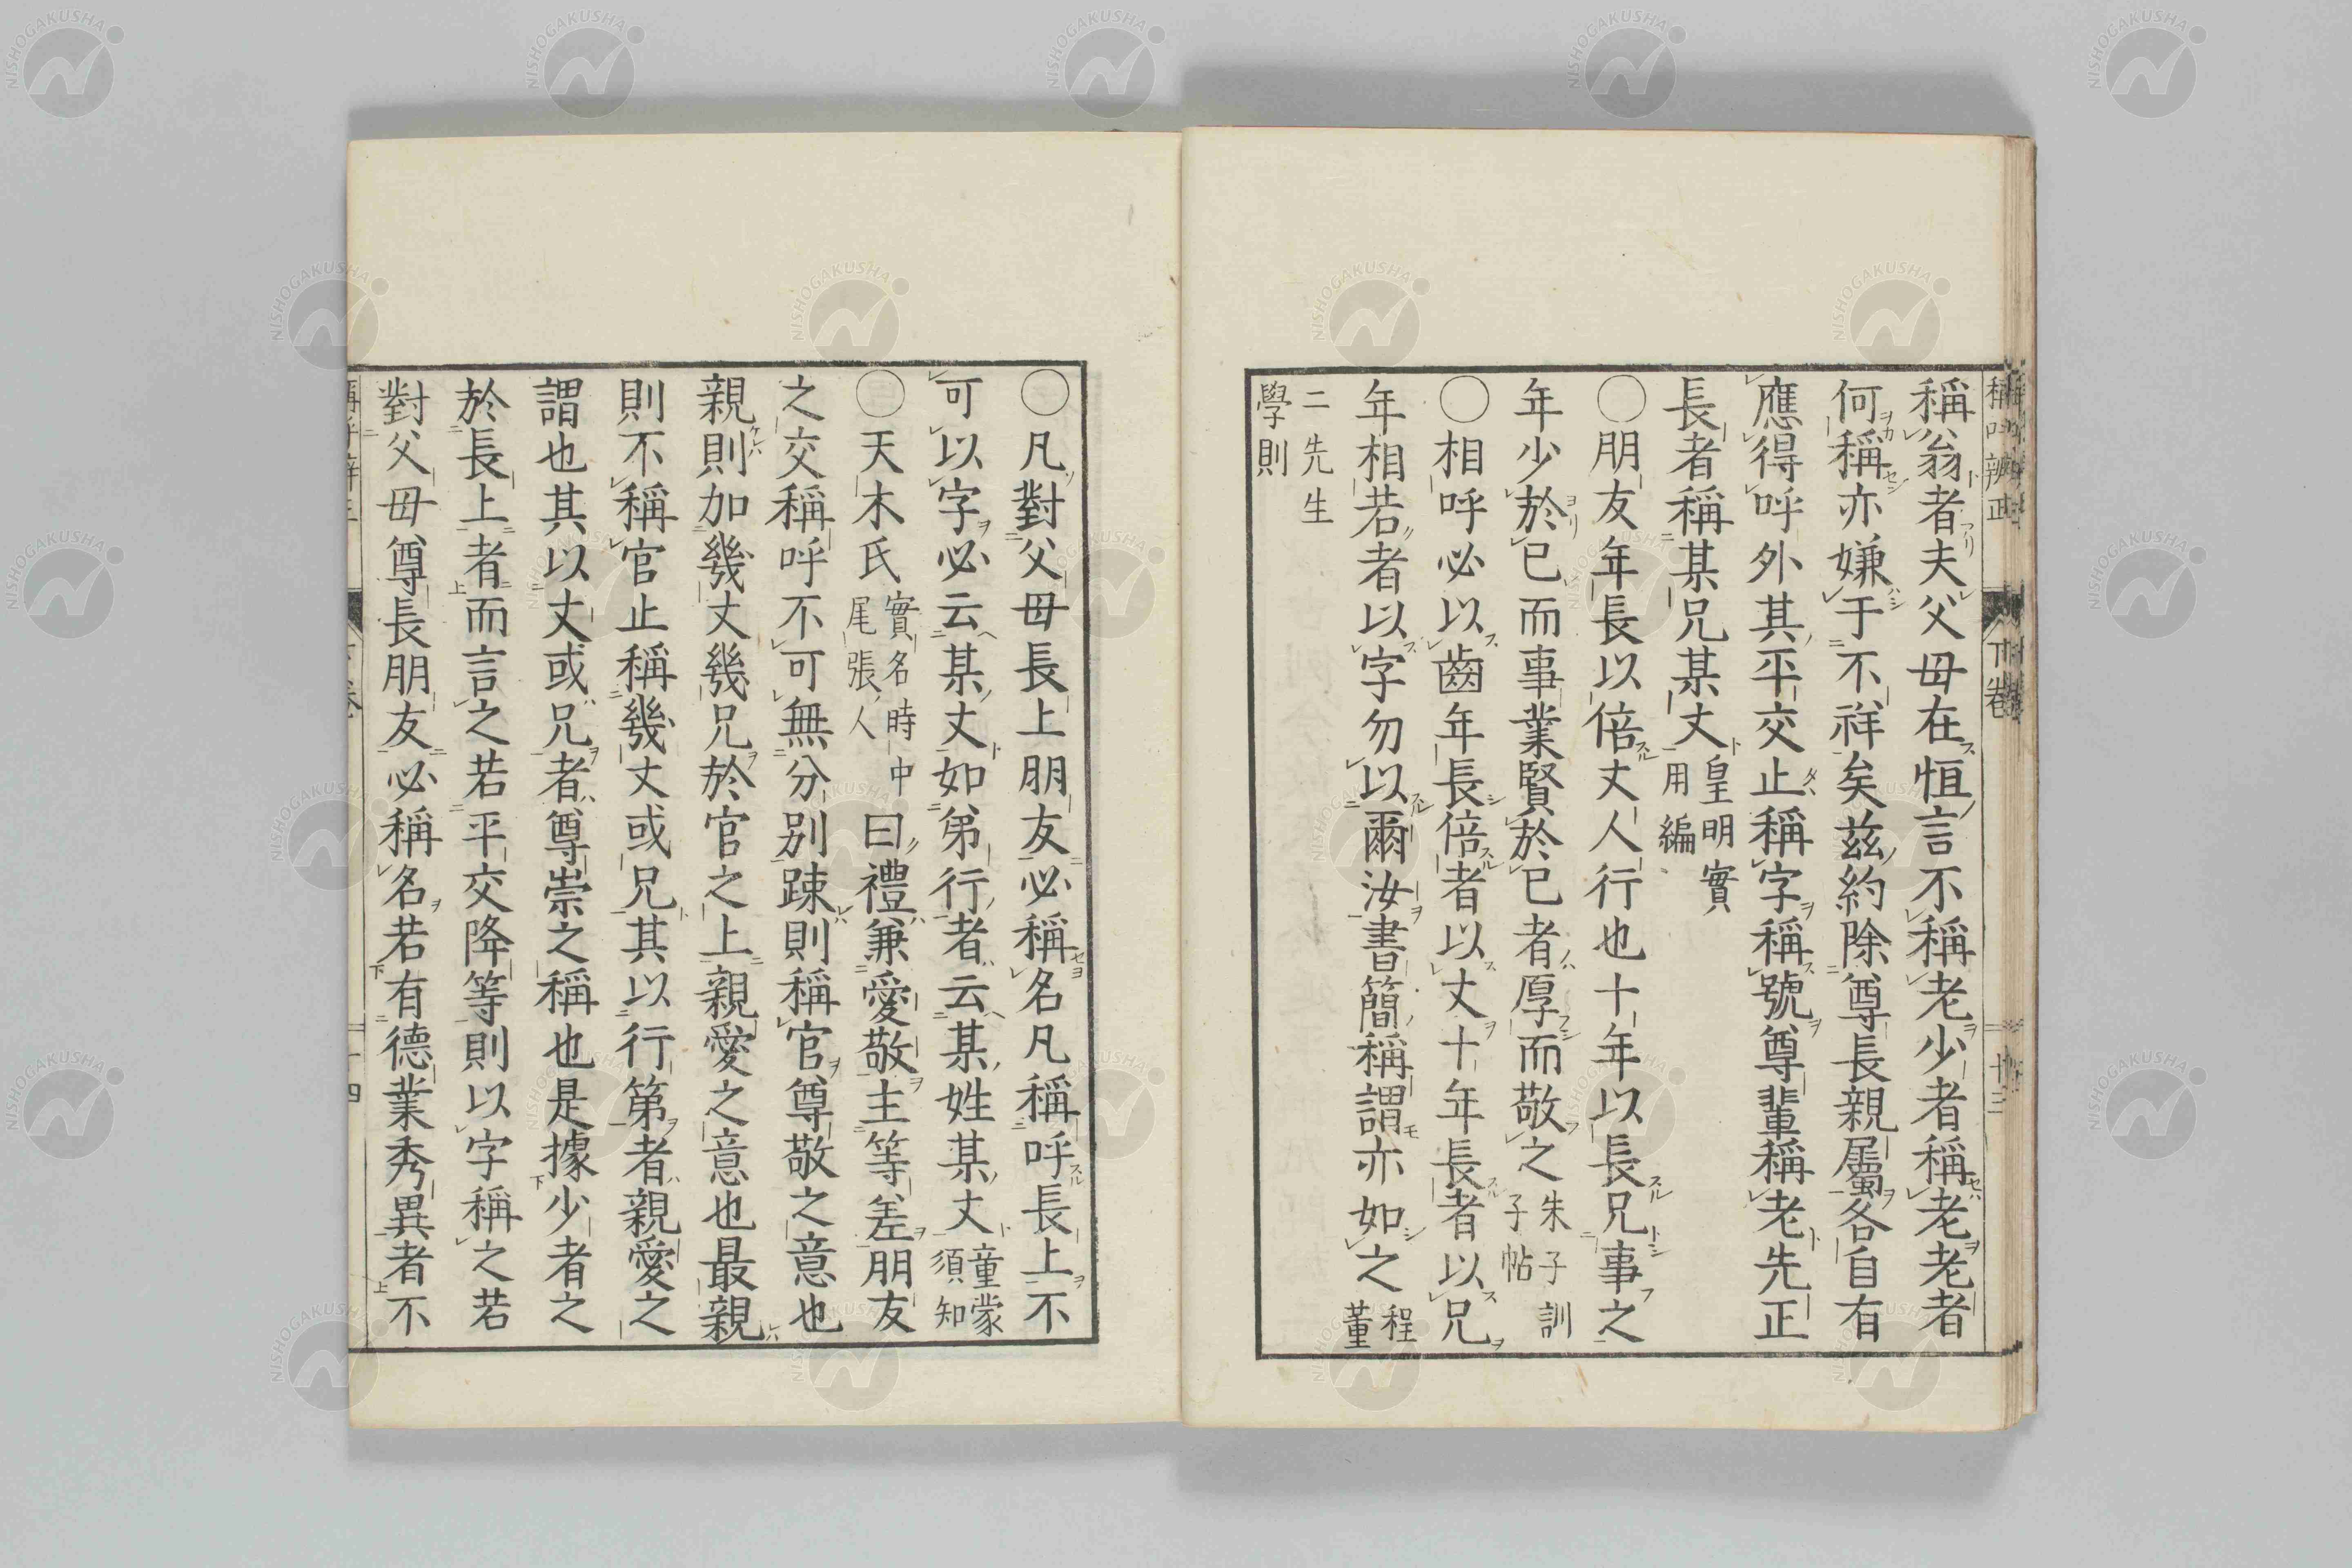 稱翁者夫父母在恒言不稱老少者稱老老者
何稱亦嫌于不祥矣茲約除尊長親屬各自有
應得呼外其平交止稱字稱號尊輩稱老先正
長者稱某兄某丈皇明實用編
○朋友年長以倍丈人行也十年以長兄事之
年少於己而事業賢於己者厚而敬之朱子訓子帖
○相呼必以齒年長倍者以丈十年長者以兄
年相若者以字勿以爾汝書簡稱謂亦如之程董
二先生學則
○凡對父母長上朋友必稱名凡稱呼長上不
可以字必云某丈如弟行者云某姓某丈童蒙須知
○天木氏實名時中尾張人曰禮兼愛敬主等差朋友
之交稱呼不可無分別疎則稱官尊敬之意也
親則加幾丈幾兄於官之上親愛之意也最親
則不稱官止稱幾丈或兄其以行第者親愛之
謂也其以丈或兄者尊崇之稱也是據少者之
於長上者而言之若平交降等則以字稱之若
對父母尊長朋友必稱名若有德業秀異者不
稱呼辨正
下卷
十三
十四
NISHOGAKUSHA